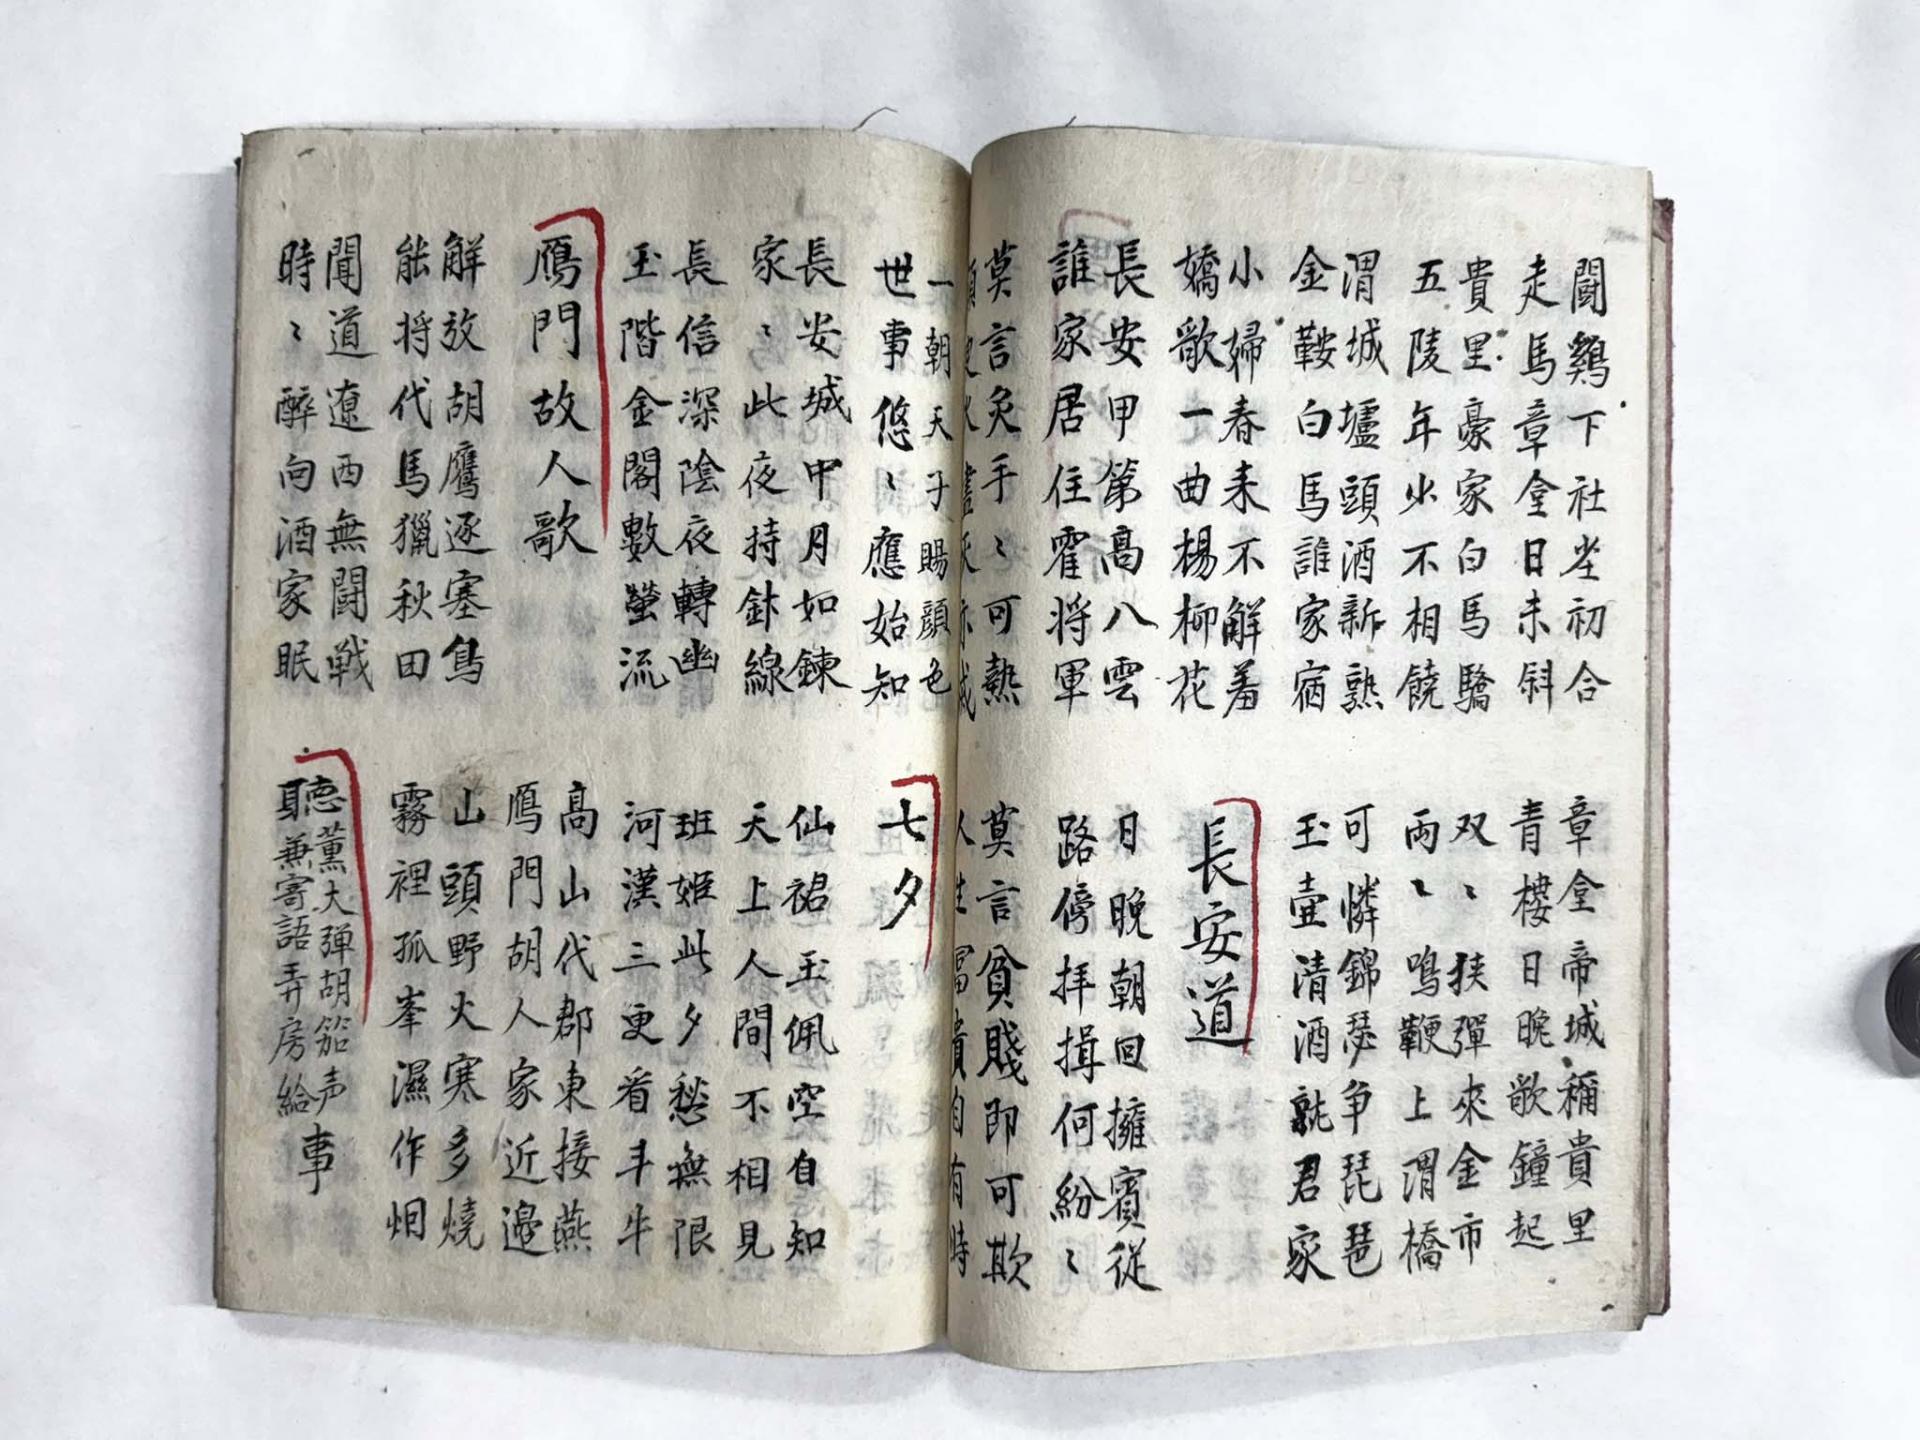 闘鷄下社坐初合
走馬章堂日未斜
章堂帝城稱貴里
青樓日晚歌鐘起
貴里豪家白馬驕
五陵年少不相饒
双〻挟彈來金市
兩〻鳴鞭上渭橋
渭城壚頭酒新熟
金鞍白馬誰家宿
可憐錦瑟争琵琶
玉壷清酒就君家
小婦春来不解羞
嬌歌一曲楊柳花
長安道
長安甲第高八雲
誰家居住霍将軍
日晚朝回擁賓従
路傍拝揖何紛〻
莫言灸手〻可熱
須臾火盡灰亦滅
莫言貧賤即可欺
人生富貴自有時
一朝天子賜顔色
世事悠〻應始知
七夕
長安城中月如錬
家〻此夜持針線
仙裙玉佩空自知
天上人間不相見
長信深陰夜轉幽
玉階金閣數螢流
班姫此夕愁無限
河漢三更看斗牛
鴈門故人歌
高山代郡東接燕
鴈門胡人家近邊
解放胡鷹逐塞鳥
能将代馬獵秋田
山頭野火寒多燒
霧裡孤峯濕作烟
聞道遼西無闘戦
時〻醉向酒家眠
聽薫大弾胡笳声兼寄語弄房給事